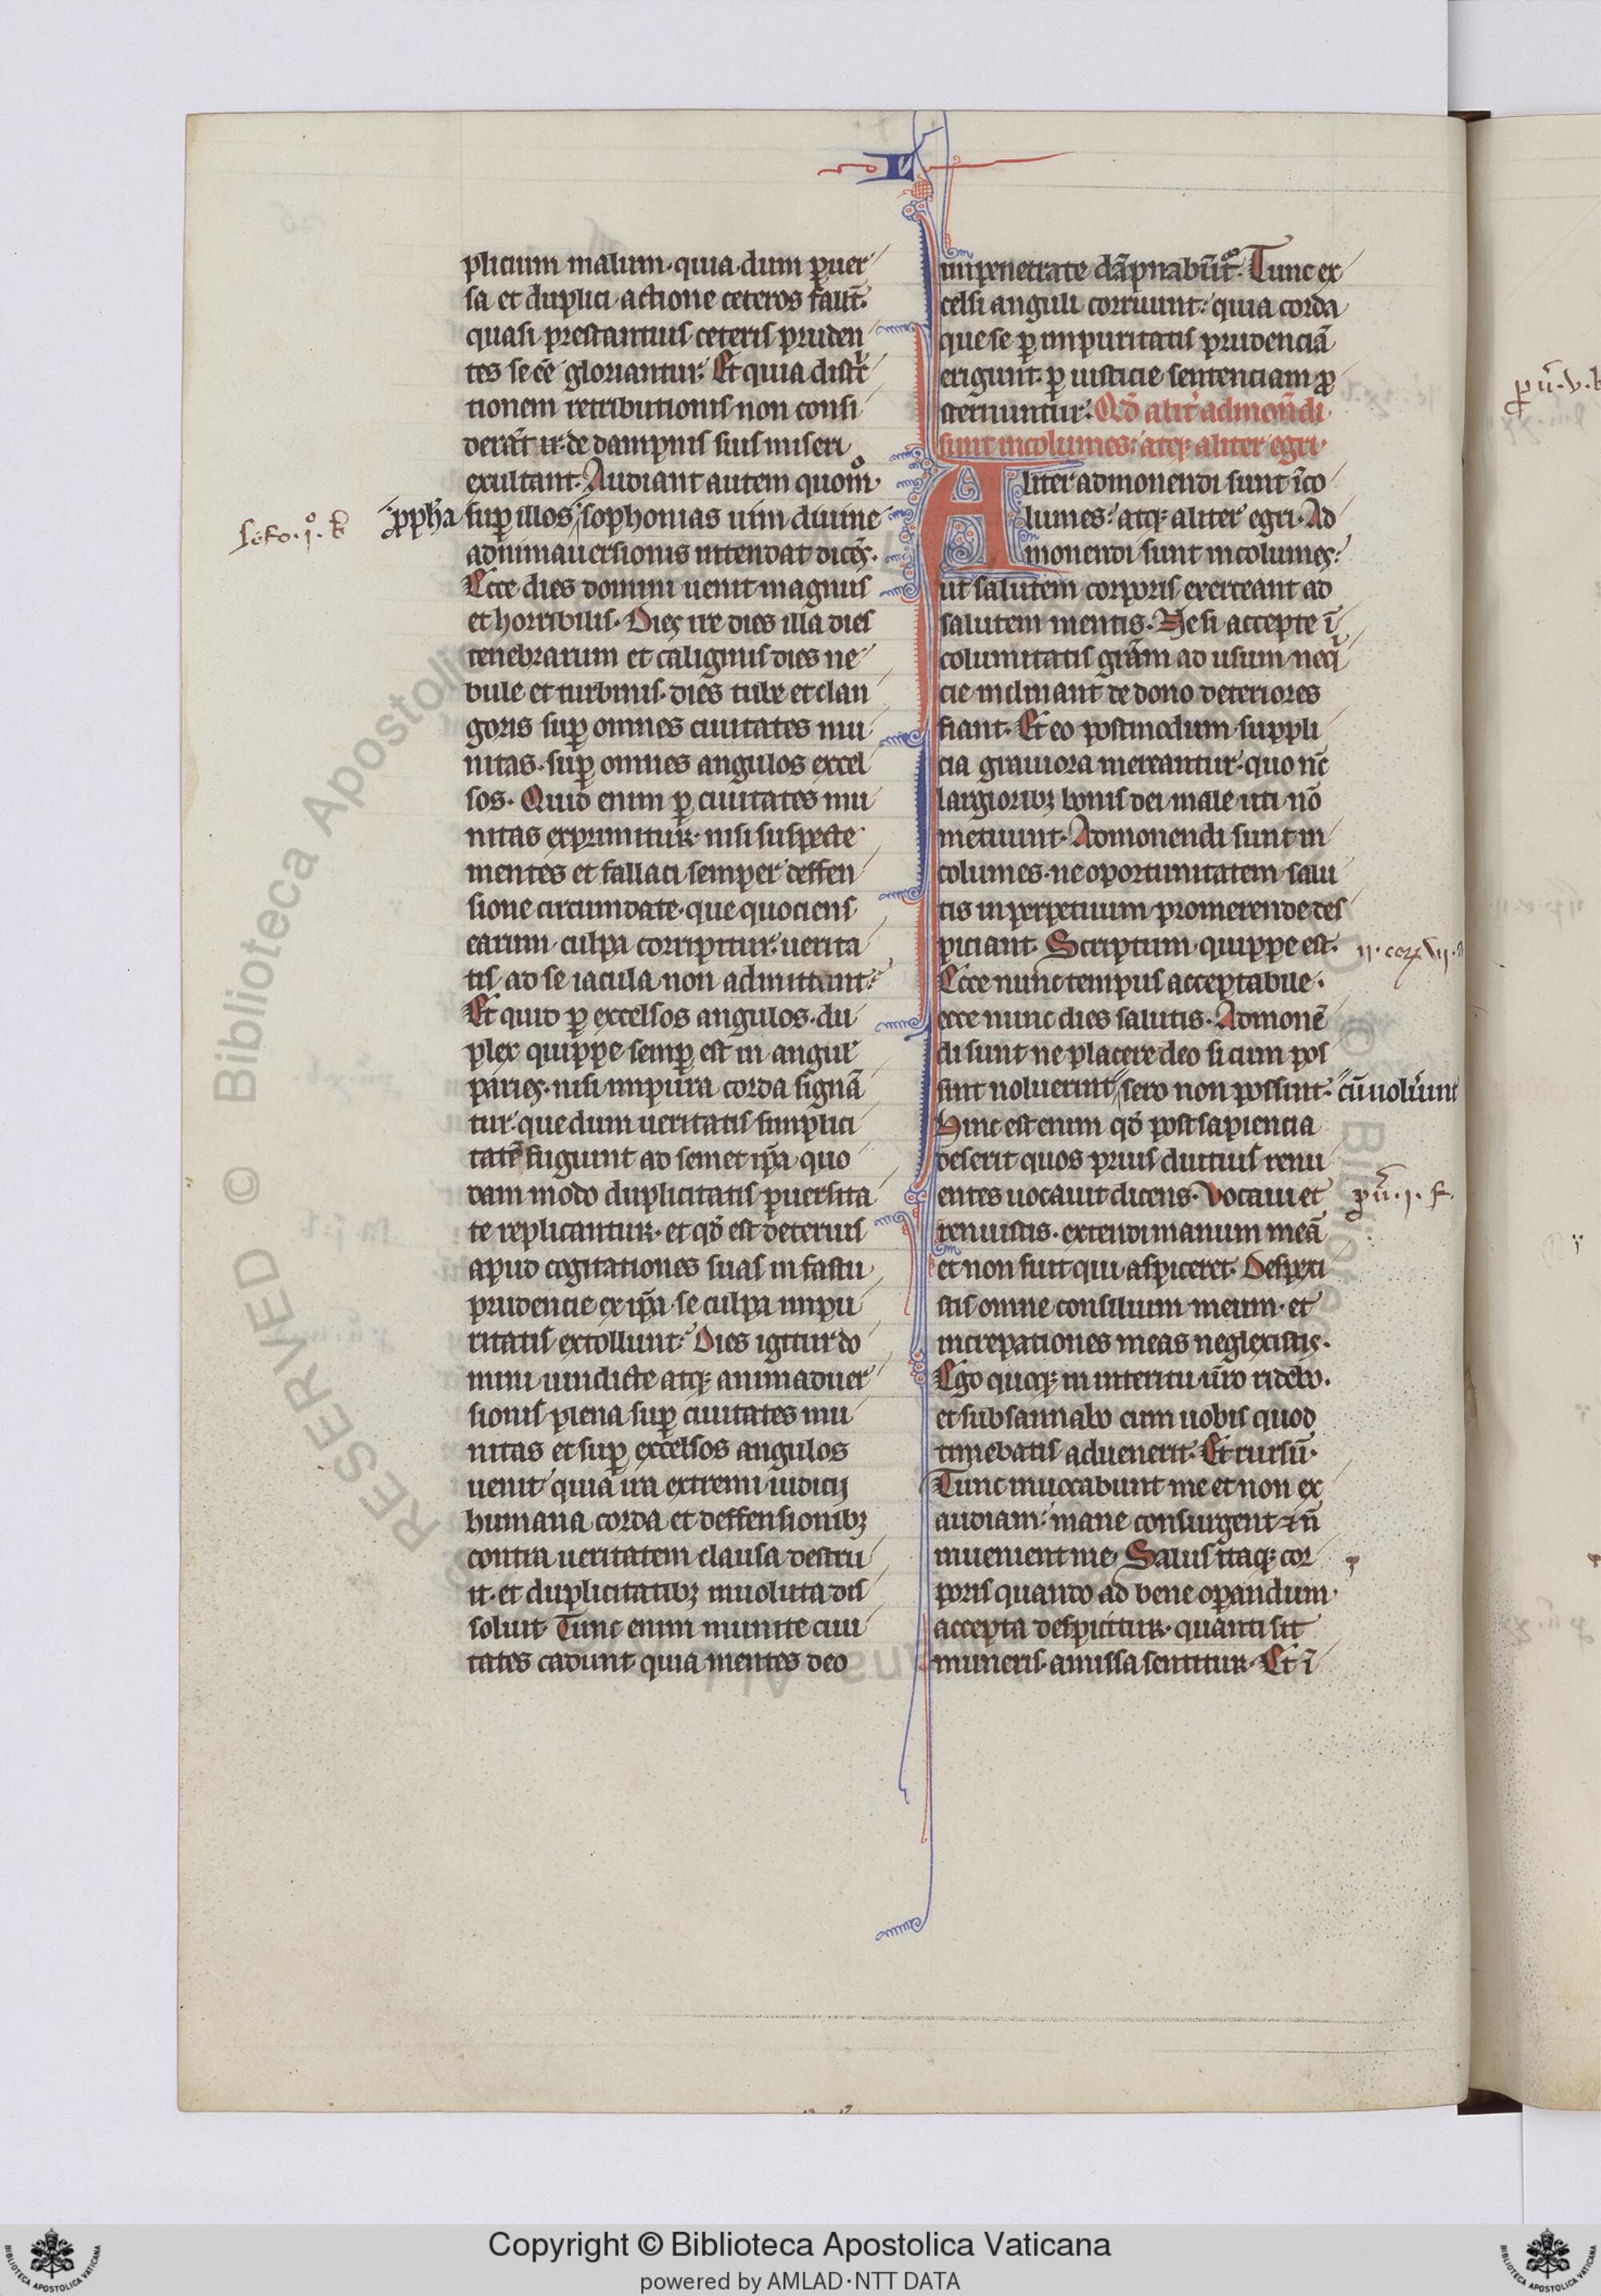 plicium malum · quia dum ꝑuer
sa et duplici actione ceteros fallūt·
quasi prestantius ceteris pruden
tes se eē gloriantur· Et quia distͨ
tionem retributionis non consi
derāt · de dampnis suis miseri
exultant· Audiant autem quomͦ·
sofo · i°· b
ꝓpha
suꝑ illos sophonias uim diuine
adnimauersionis intendat dicēs·
Ecce dies domini uenit magnus
et horribilis· Dies ire dies illa dies
tenebrarum et caliginis dies ne
bule et turbinis· dies tube et clan
goris suꝑ omnes ciuitates mu
nitas· suꝑ omnes angulos excel
sos· Quid enim ꝑ ciuitates mu
nitas exprimitur· nisi suspecte
mentes et fallaci semper deffen
sione circumdate· que quociens
earum culpa corripitur uerita
tis ad se iacula non admittunt·
Et quid ꝑ excelsos angulos· du
plex quippe semꝑ est in angul'
paries· nisi impura corda signā
tur que dum ueritatis simplici
tatē fugiunt ad semet ip̄a quo
dam modo duplicitatis ꝑuersita
te replicantur· et qđ est deterius
apud cogitationes suas in fastu
prudencie ex ip̄a se culpa impu
ritatis extollunt· Dies igitur do
mini uindicte atqꝫ animaduer
sionis plena suꝑ ciuitates mu
nitas et suꝑ excelsos angulos
uenit quia ira extremi iudicij
humana corda et deffensionibꝫ
contra ueritatem clausa destru
it· et duplicitatibꝫ inuoluta dis
soluit· Tunc enim munite ciui
tates cadunt quia mentes deo
impenetrate dāpnabūt᷑· Tunc ex
celsi anguli corruunt· quia corda
que se ꝑ impuritatis prudenciā
erigunt· ꝑ iusticie sentenciam ꝓ
sternuntur· Qđ alit᷑ admonēdi
sunt incolumes· atqꝫ aliter egri·
Aliter admonendi sunt īco
lumes· atqꝫ aliter egri· Ad
monendi sunt incolumes·
ut salutem corporis exerceant ad
salutem mentis· Ne si accepte ī
columitatis grām ad usum neqͥ
cie inclinant de dono deteriores
fiant· Et eo postmodum suppli
cia grauiora mereantur· quo nc̄
largioribꝫ bonis dei male uti nō
metuunt· Admonendi sunt in
columes· ne oportunitatem salu
tis in perpetuum promerende des
piciant· Scriptum quippe est·
Ecce nunc tempus acceptabile·
ecce nunc dies salutis· Admonē
di sunt ne placere deo si cum pos
sunt noluerint sero non possint·
cū uolu᷑int
Hinc est enim qđ post sapiencia
deserit quos prius diutius renu
entes uocauit dicens· Vocaui et
pu᷑· i· f·
renuistis· extendi manum meā
et non fuit qui aspiceret· Despexi
stis omne consilium meum· et
increpationes meas neglexistis·
Ego quoqꝫ in interitu ūro ridebo·
et subsannabo cum uobis quod
timebatis aduenerit· Et rursū·
Tunc inuocabunt me et non ex
audiam· mane consurgent ⁊ ñ
inuenient me· Salus itaqꝫ cor
poris quando ad bene oꝑandum
accepta despicitur· quanti sit
muneris· amissa sentitur· Et ī
RESERVED © Biblioteca Apostolica
Copyright © Biblioteca Apostolica Vaticana
powered by AMLAD·NTT DATA
BIBLIOTECA APOSTOLICA VATICANA
BIBLIOTECA APOSTOLICA VATICANA